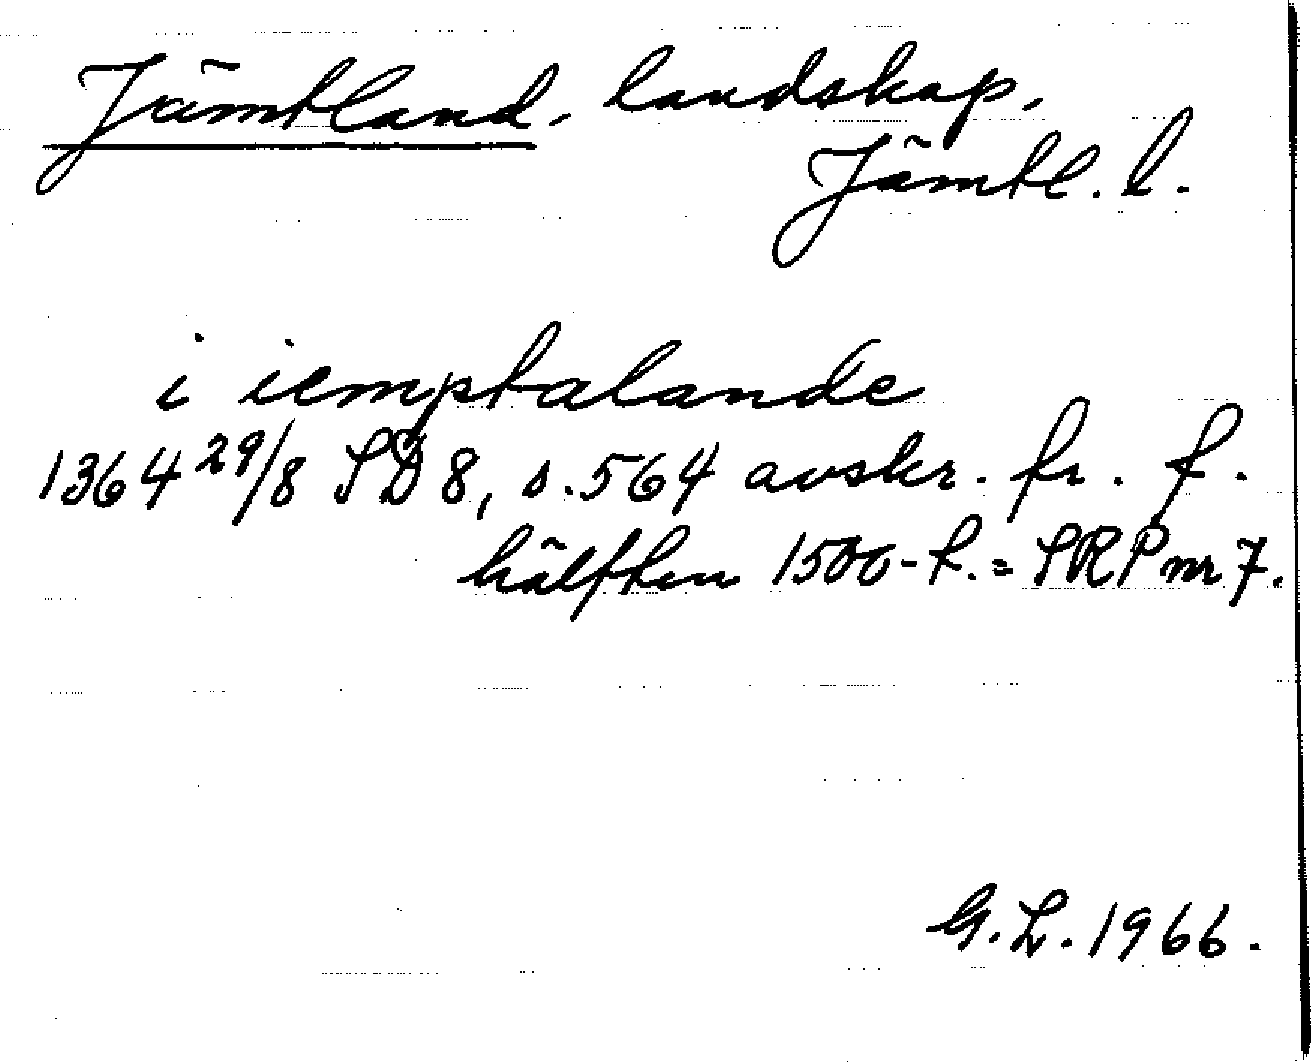 Jämtland, landskap.
Jämtl. l.
i iemptalande
1364 29/8 SD 8, s. 564 avskr. fr. f.
hälften 1500-t. = SRP nr 7.
G.L. 1966.